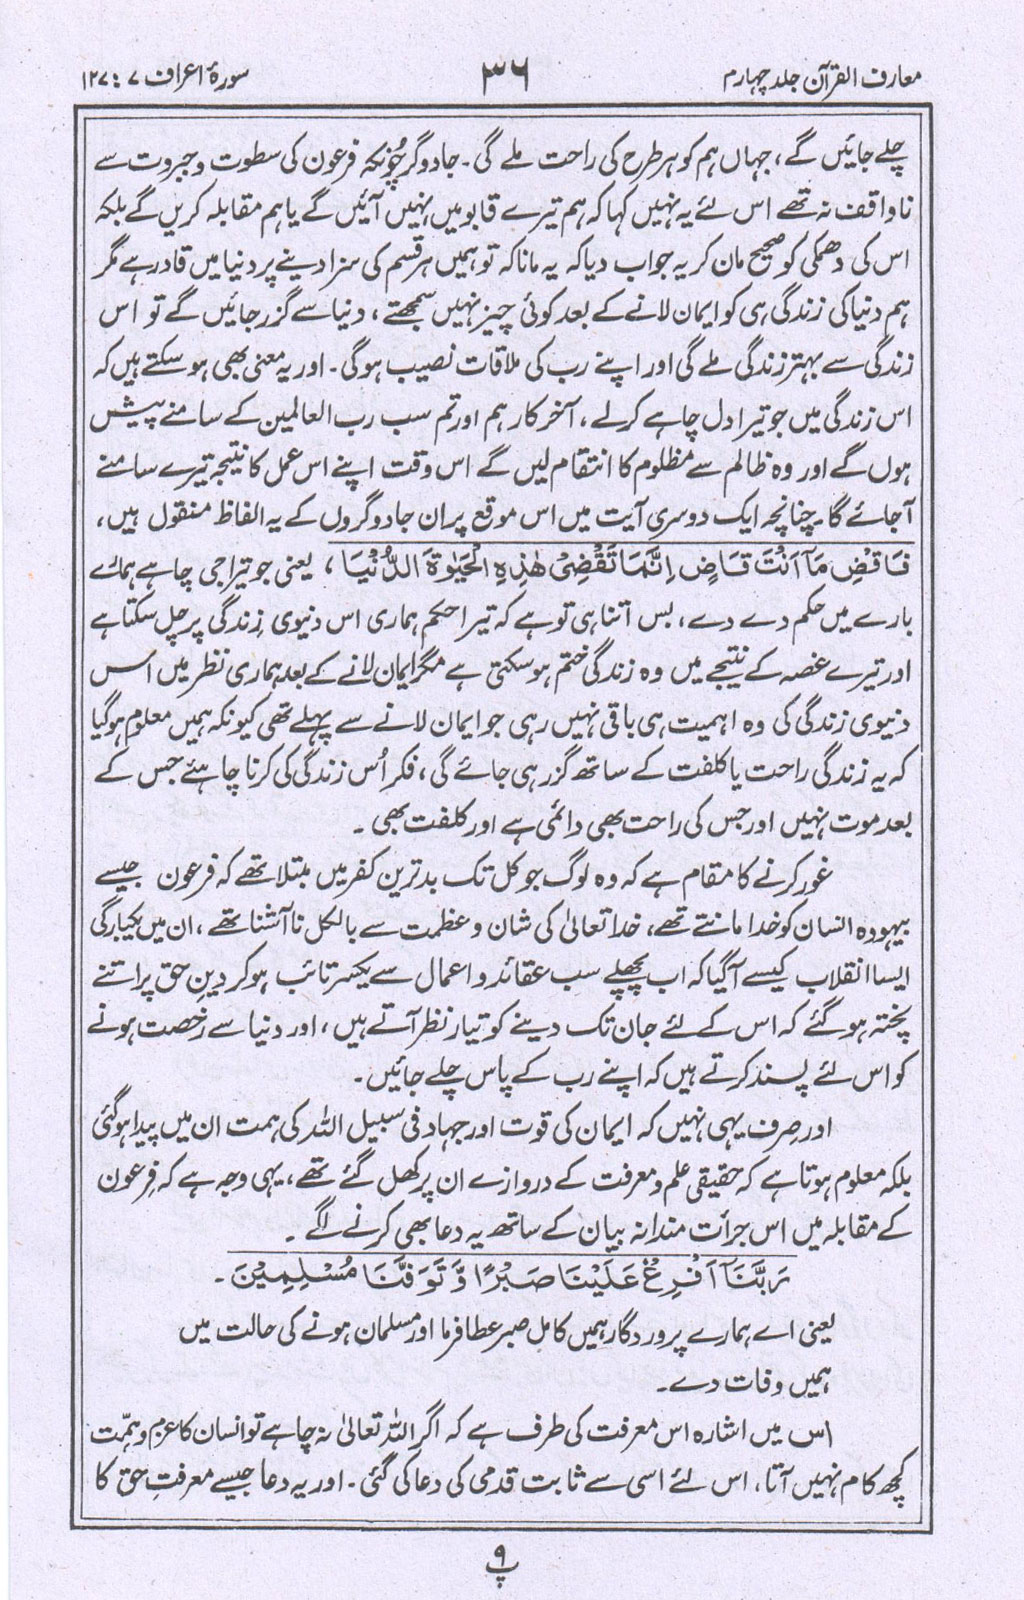 معارف القرآن جلد چہارم ۳۶ سورۂ اعراف ۷ : ۱۲۷
چلے جائیں گے، جہاں ہم کو ہر طرح کی راحت ملے گی۔ جادوگر چونکہ فرعون کی سطوت و جبروت سے
ناواقف نہ تھے اس لئے یہ نہیں کہا کہ ہم تیرے قابو میں نہیں آئیں گے یا ہم مقابلہ کریں گے بلکہ
اس کی دھمکی کو صحیح مان کر یہ جواب دیا کہ یہ مانا کہ تو ہمیں ہر قسم کی سزا دینے پر دنیا میں قادر ہے مگر
ہم دنیا کی زندگی ہی کو ایمان لانے کے بعد کوئی چیز نہیں سمجھتے، دنیا سے گزر جائیں گے تو اس
زندگی سے بہتر زندگی ملے گی اور اپنے رب کی ملاقات نصیب ہوگی۔ اور یہ معنی بھی ہو سکتے ہیں کہ
اس زندگی میں جو تیرا دل چاہے کرلے، آخر کار ہم اور تم سب رب العالمین کے سامنے پیش
ہوں گے اور وہ ظالم سے مظلوم کا انتقام لیں گے اس وقت اپنے اس عمل کا نتیجہ تیرے سامنے
آجائے گا۔ چنانچہ ایک دوسری آیت میں اس موقع پر ان جادوگروں کے یہ الفاظ منقول ہیں،
فَاقْضِ مَآ اَنْتَ قَاضٍ اِنَّمَا تَقْضِیْ ھٰذِہِ الْحَیٰوۃَ الدُّنْیَا، یعنی جو تیرا جی چاہے ہمارے
بارے میں حکم دے دے، بس اتنا ہی تو ہے کہ تیرا حکم ہماری اس دنیوی زندگی پر چل سکتا ہے
اور تیرے غصہ کے نتیجے میں وہ زندگی ختم ہو سکتی ہے مگر ایمان لانے کے بعد ہماری نظر میں اس
دنیوی زندگی کی وہ اہمیت ہی باقی نہیں رہی جو ایمان لانے سے پہلے تھی کیونکہ ہمیں معلوم ہوگیا
کہ یہ زندگی راحت یا کلفت کے ساتھ گزر ہی جائے گی، فکر اُس زندگی کی کرنا چاہئے جس کے
بعد موت نہیں اور جس کی راحت بھی دائمی ہے اور کلفت بھی۔
غور کرنے کا مقام ہے کہ وہ لوگ جو کل تک بدترین کفر میں مبتلا تھے کہ فرعون جیسے
بیہودہ انسان کو خدا مانتے تھے، خدا تعالیٰ کی شان و عظمت سے بالکل ناآشنا تھے، ان میں یکبارگی
ایسا انقلاب کیسے آگیا کہ اب پچھلے سب عقائد و اعمال سے یکسر تائب ہو کر دین حق پر اتنے
پختہ ہوگئے کہ اس کے لئے جان تک دینے کو تیار نظر آتے ہیں، اور دنیا سے رخصت ہونے
کو اس لئے پسند کرتے ہیں کہ اپنے رب کے پاس چلے جائیں۔
اور صرف یہی نہیں کہ ایمان کی قوت اور جہاد فی سبیل اللہ کی ہمت ان میں پیدا ہوگئی
بلکہ معلوم ہوتا ہے کہ حقیقی علم و معرفت کے دروازے ان پر کھل گئے تھے، یہی وجہ ہے کہ فرعون
کے مقابلہ میں اس جرأت مندانہ بیان کے ساتھ یہ دعا بھی کرنے لگے۔
رَبَّنَآ اَفْرِغْ عَلَیْنَا صَبْرًا وَّتَوَفَّنَا مُسْلِمِیْنَ۔
یعنی اے ہمارے پروردگار ہمیں کامل صبر عطا فرما اور مسلمان ہونے کی حالت میں
ہمیں وفات دے۔
اس میں اشارہ اس معرفت کی طرف ہے کہ اگر اللہ تعالیٰ نہ چاہے تو انسان کا عزم و ہمّت
کچھ کام نہیں آتا، اس لئے اسی سے ثابت قدمی کی دعا کی گئی۔ اور یہ دعا جیسے معرفتِ حق کا
پ ۹